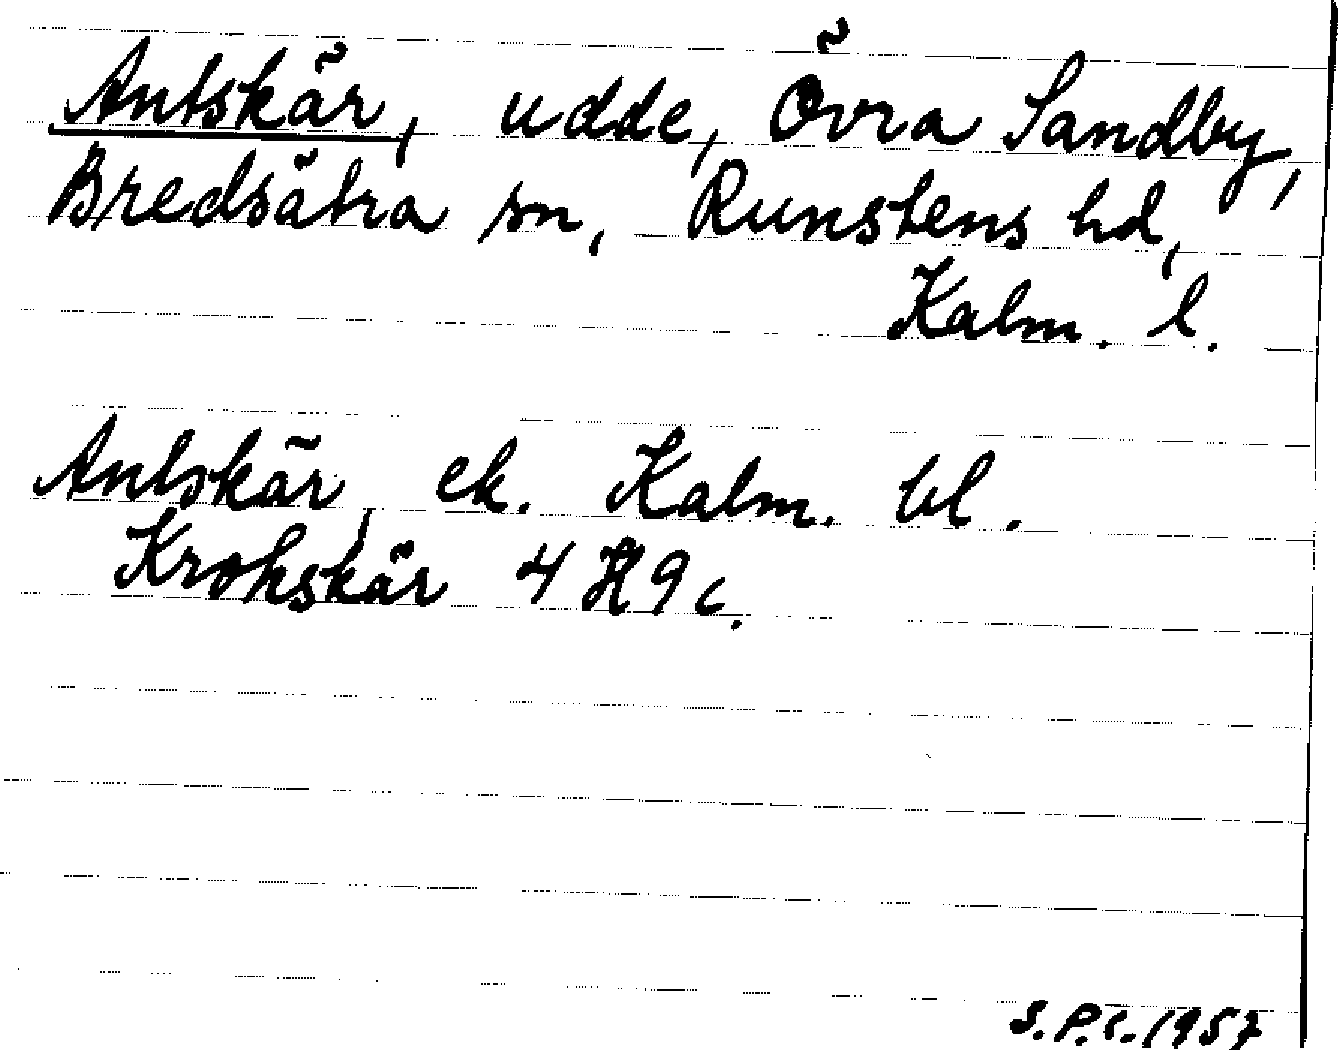 Antskär, udde, Övra Sandby,
Bredsätra sn, Runstens hd,
Kalm. l.
Antskär, ek. Kalm. bl.
Krokskär 4 H 9 c.
S.P.C. 1957